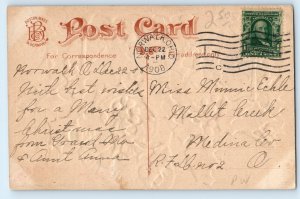 Post Card
For Correspondence
NORWALK, OHIO
DEC 22
6-PM
1908
Norwalk O Dec 22 08
With best wishes
for a Merry
Christmas
from Grand Ma
& Aunt Anna
Miss Minnie Eckle
Mallet Creek
Medina Co
R Fd no 2 O